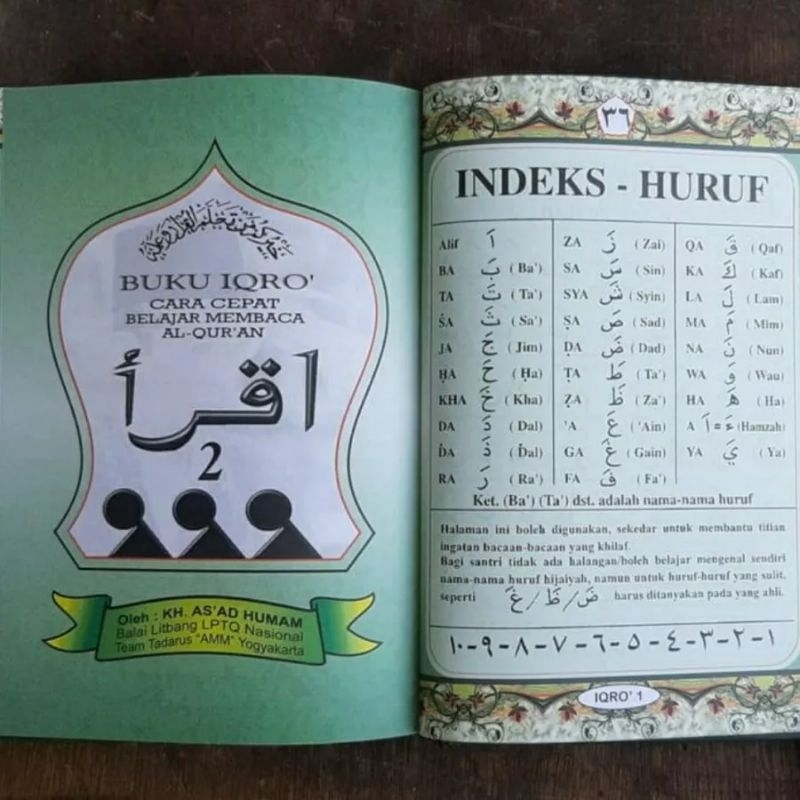 خيركم من تعلم القرآن وعلمه
BUKU IQRO'
CARA CEPAT
BELAJAR MEMBACA
AL-QUR'AN
اقرأ
2
Oleh : KH. AS'AD HUMAM
Balai Litbang LPTQ Nasional
Team Tadarus "AMM" Yogyakarta
٣٦
INDEKS - HURUF
Alif اَ ZA زَ (Zai) QA قَ (Qaf)
BA بَ (Ba') SA سَ (Sin) KA كَ (Kaf)
TA تَ (Ta') SYA شَ (Syin) LA لَ (Lam)
ṠA ثَ (Sa') ṢA صَ (Sad) MA مَ (Mim)
JA جَ (Jim) ḌA ضَ (Dad) NA نَ (Nun)
ḤA حَ (Ḥa) ṬA طَ (Ta') WA وَ (Wau)
KHA خَ (Kha) ẒA ظَ (Za') HA هَ (Ha)
DA دَ (Dal) 'A عَ ('Ain) A اَ = ءَ (Hamzah)
ḊA ذَ (Ḋal) GA غَ (Gain) YA يَ (Ya)
RA رَ (Ra') FA فَ (Fa')
Ket. (Ba') (Ta') dst. adalah nama-nama huruf
Halaman ini boleh digunakan, sekedar untuk membantu titian
ingatan bacaan-bacaan yang khilaf.
Bagi santri tidak ada halangan/boleh belajar mengenal sendiri
nama-nama huruf hijaiyah, namun untuk huruf-huruf yang sulit,
seperti ضَ / ظَ / غَ harus ditanyakan pada yang ahli.
١-٢-٣-٤-٥-٦-٧-٨-٩-١٠
IQRO' 1